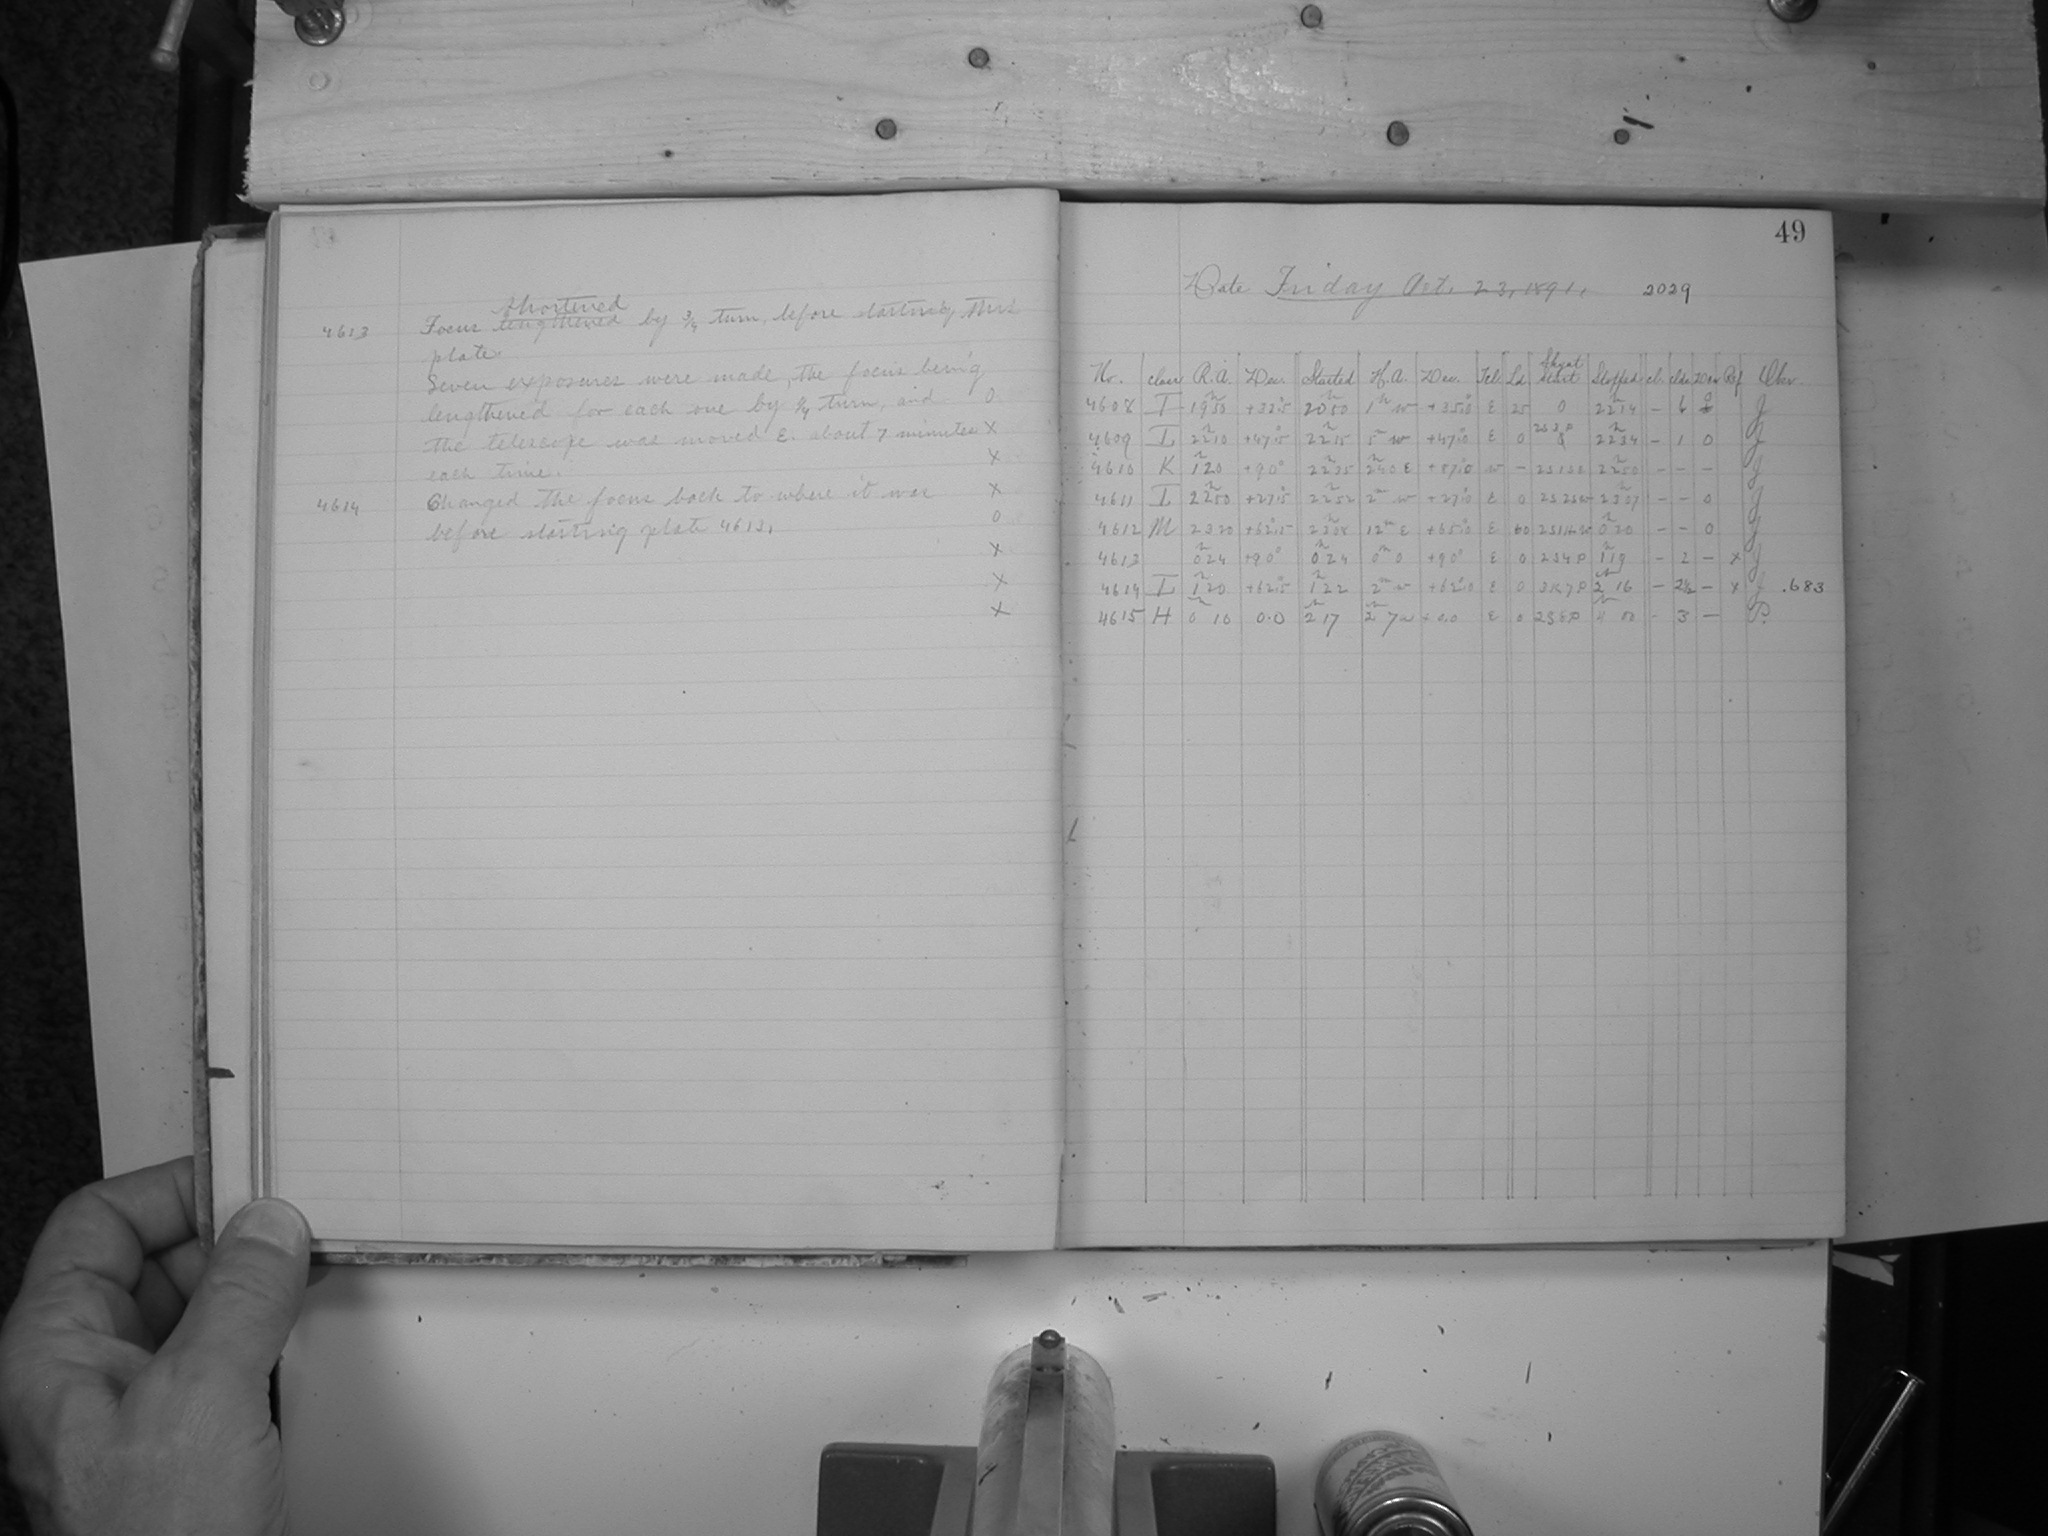 shortened
4613 Focus lengthened by 3/4 turn, before starting this
plate.
Seven exposures were made, the focus being
lengthened for each one by 1/4 turn, and O
the telescope was moved E. about 7 minutes X
each time. X
4614 Changed the focus back to where it was X
before starting plate 4613. O
X
X
X
49
Date Friday Oct. 23, 1891. 2029
No. Class R.A. Dec. Started H.A. Dec. Tel. Ld Start Stopped cl. clds Dew Ref Obser.
4608 I 19 50 +32.5 20 50 1h w +35.0 E 25 0 22 14 – 6
4609 I 22 10 +47.5 22 15 5m w +47.0 E 0 22 34 – 1 0
4610 K 1 20 +90° 22 35 2 40 E +87.0 w – 22 50 – – –
4611 I 22 50 +27.5 22 52 2m w +27.0 E 0 23 07 – – 0
4612 M 23 20 +62.5 23 08 12m E +65.0 E 60 0 20 – – 0
4613 0 24 +90° 0 24 0m 0 +90° E 0 2S4P 1 19 – 2 – X
4614 I 1 20 +62.5 1 22 2m w +62.0 E 0 2 16 – 2½ – X .683
4615 H 0 10 0.0 2 17 2 7w +0.0 E 0 2S8P 4 00 – 3 – P.